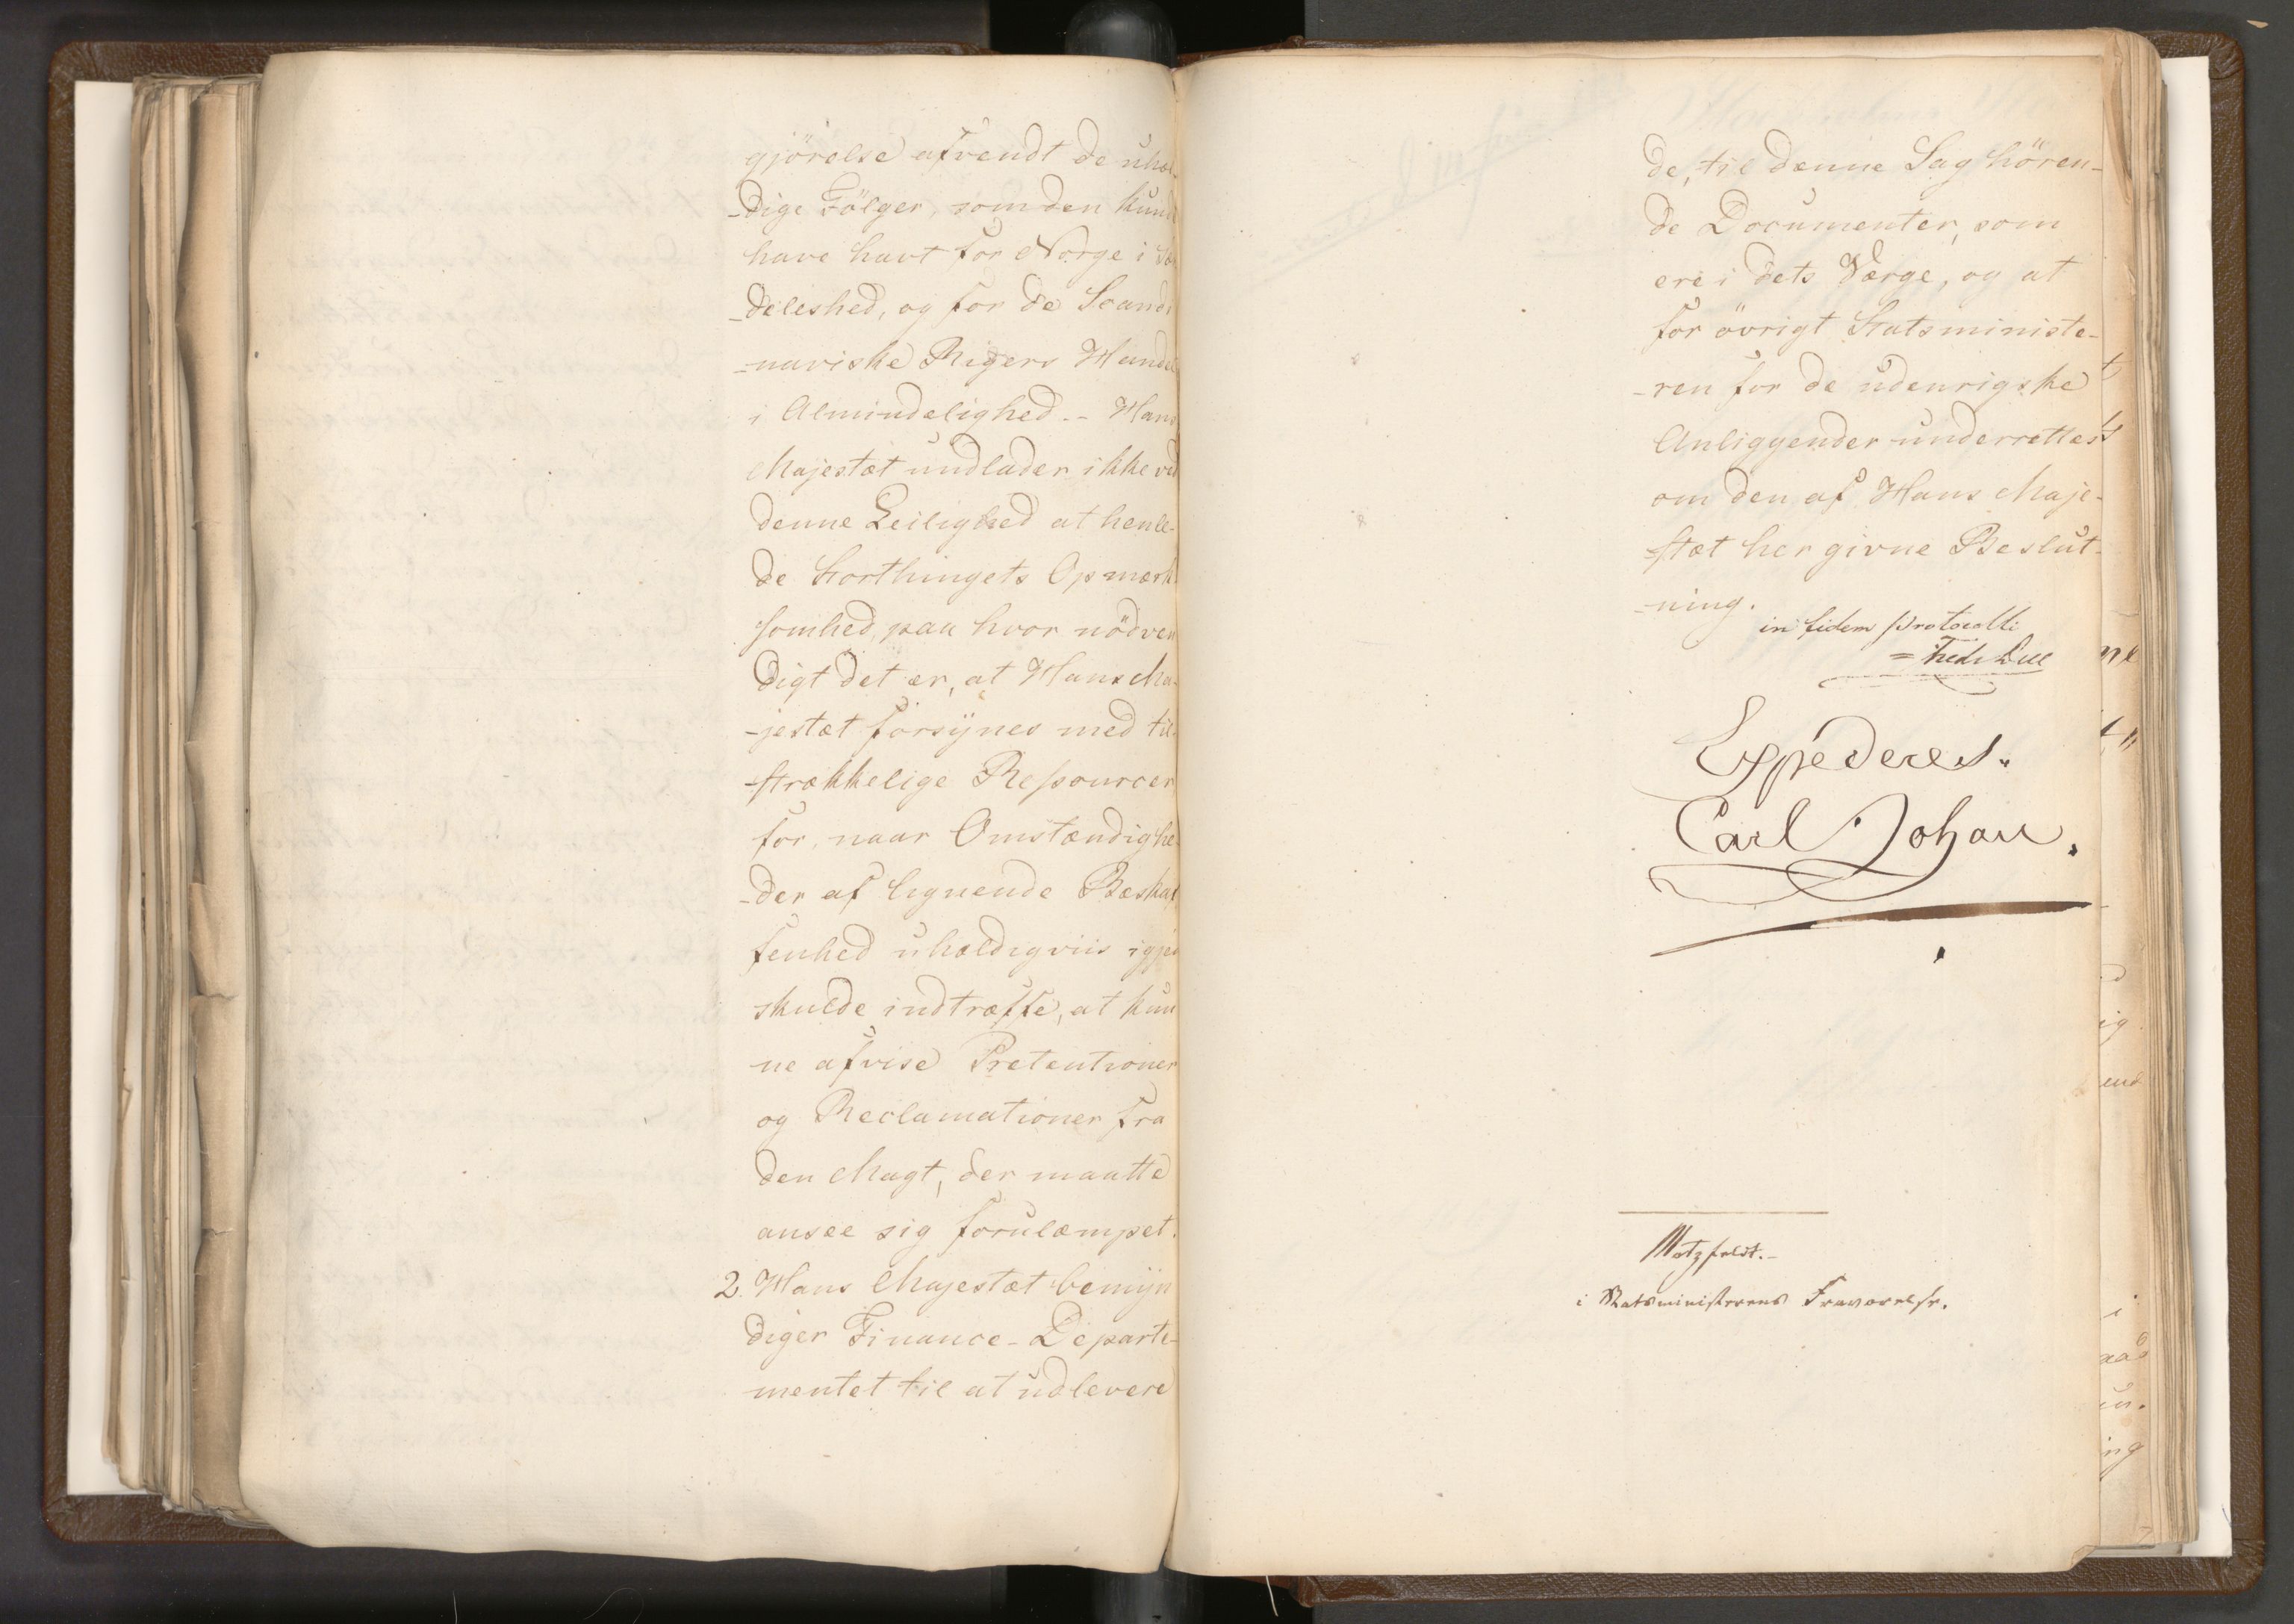 gjörelse afvendt de uhel-
-dige Fölger, som den kunde
have havt for Norge i Sær
-deleshed, og for de Scandi
-naviske Rigers Handel
i Almindelighed. - Hans
Majestæt undlader ikke ved
denne Leilighed at henle-
de Storthingets Opmærk
somhed, paa hvor nödven
digt det er, at Hans Ma-
-jestæt forsÿnes med til-
-strækkelige Ressourcer
for, naar Omstændighe-
-der af lignende Beskaf
fenhed uheldigviis igjen
skulde indtræffe, at kun
ne afvise Pretentioner
og Reclamationer fra
den Magt, der maatte
ansee sig forulæmpet.
2. Hans Majestæt bemÿn
diger Finance-Departe-
mentet til at udlevere
de, til denne Sag hören-
de Documenter, som
ere i dets Værge, og at
for övrigt Statsministe-
-ren for de udenrigske
Anliggender underrettes
om den af Hans Maje-
-stæt her givne Beslut-
-ning.
in fidem protocolli
= Fredr Due
Expederes.
Carl Johan.
Motzfeldt.-
i Statsministerens Fraværelse.